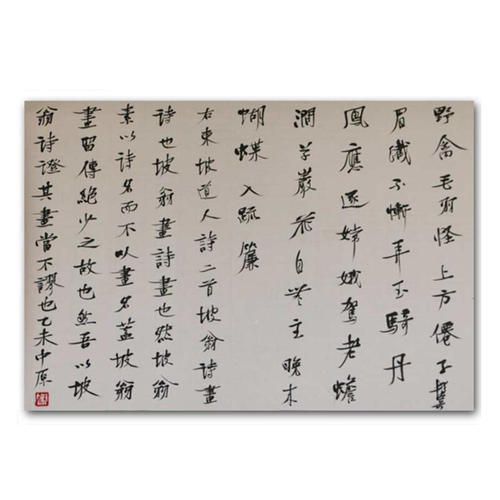 野禽毛羽怪上方僊子鬢
眉纖不慚弄玉騎丹
鳳應逐嫦娥駕老蟾
澗草巖花自無主晚來
蝴蝶入疏簾
右東坡道人詩二首坡翁詩畫
詩也坡翁畫詩畫也然坡翁
素以詩名而不以畫名蓋坡翁
畫留傳絕少之故也然吾以坡
翁詩證其畫當不謬也乙未中原